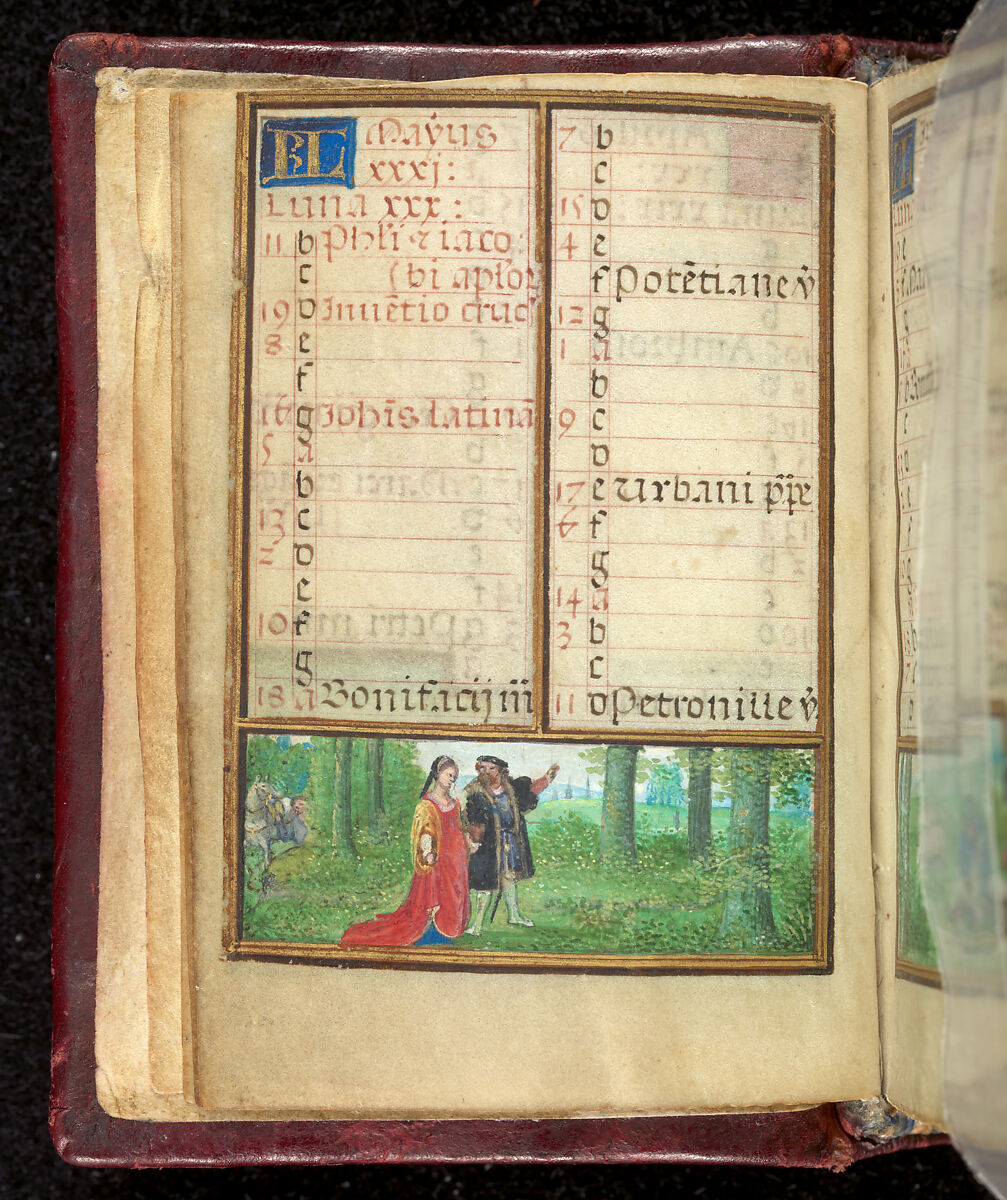 KL Mayus
xxxj:
Luna xxx:
11 b Phłi ⁊ iaco
c (bi apłoꝝ
19 d Inuētio cruc̄
8 e
f
16 g Iohīs latinā
5 A
b
13 c
2 d
e
10 f
g
18 A Bonifacij m̄
7 b
c
15 d
4 e
f Potētiane v̄
12 g
1 A
b
9 c
d
17 e Urbani pp̄e
6 f
g
14 A
3 b
c
11 d Petronille v̄